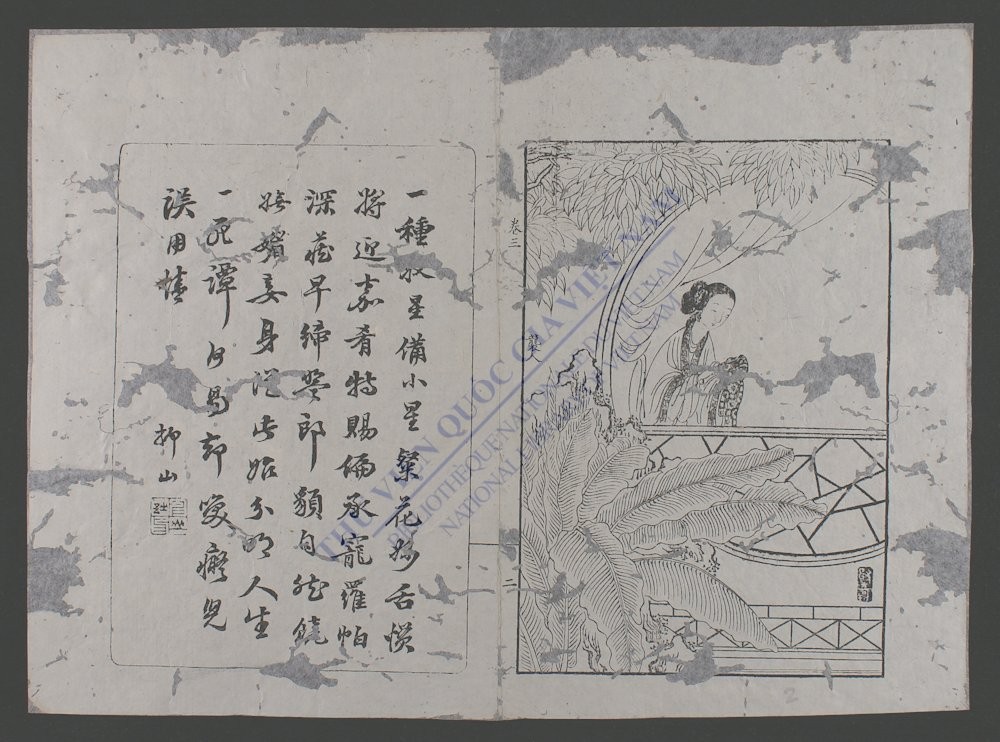 卷三
襲人
二
一種星備小星粲花妙舌慣
將迎嘉肴特賜偏承寵羅帕
深藏早締盟郎貌自然饒
嫵媚妾身從此始分明人生
一死譚何易卻笑癡兒
誤用情
柳山
THƯ VIỆN QUỐC GIA VIỆT NAM
BIBLIOTHÈQUE NATIONALE DU VIETNAM
NATIONAL LIBRARY OF VIETNAM
2